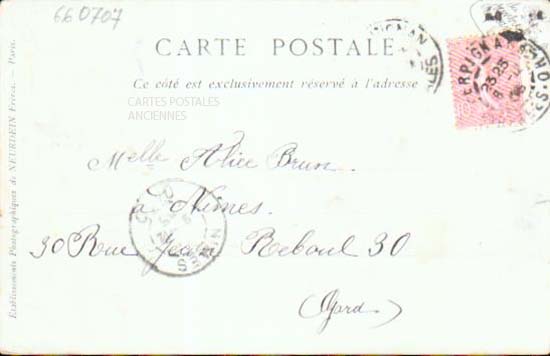 66 0707
CARTE POSTALE
Ce côté est exclusivement réservé à l'adresse
CARTES POSTALES
ANCIENNES
Melle Alice Brun
à Nimes.
30 Rue Jean Reboul 30
(Gard)
Etablissements Photographiques de NEURDEIN Frères. — Paris.
PERPIGNAN
23 25